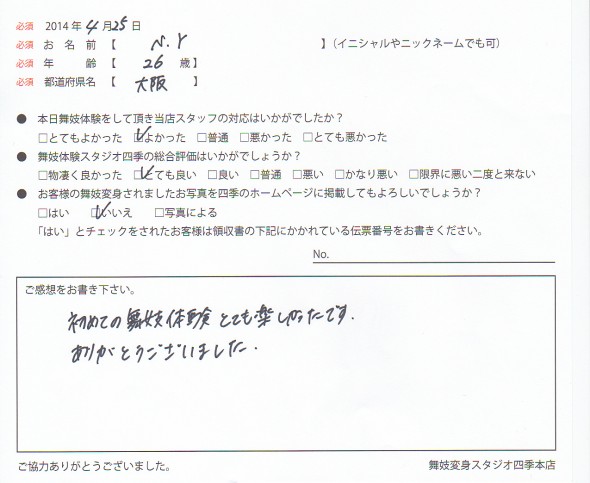 必須 2014年4月25日
必須 お名前【 N.Y 】(イニシャルやニックネームでも可)
必須 年齢【 26 歳】
必須 都道府県名【 大阪 】
● 本日舞妓体験をして頂き当店スタッフの対応はいかがでしたか?
□とてもよかった ☑よかった □普通 □悪かった □とても悪かった
● 舞妓体験スタジオ四季の総合評価はいかがでしょうか?
□物凄く良かった ☑とても良い □良い □普通 □悪い □かなり悪い □限界に悪い二度と来ない
● お客様の舞妓変身されましたお写真を四季のホームページに掲載してもよろしいでしょうか?
□はい ☑いいえ □写真による
「はい」とチェックをされたお客様は領収書の下記にかかれている伝票番号をお書きください。
No.
ご感想をお書き下さい。
初めての舞妓体験とても楽しかったです.
ありがとうございました.
ご協力ありがとうございました。 舞妓変身スタジオ四季本店